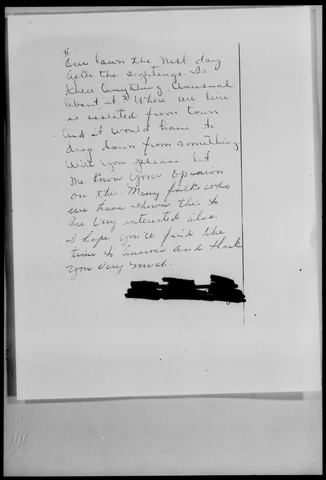 Our lawn the next day
after the sightings. Is
there anything unusual
about it? Where we live
is isolated from town
and it would have to
drop down from something
Will you please let
me know your opinion
on this. Many folks who
we have shown this to
are very interested also.
I hope you'll find the
time to answer and thank
you very much.